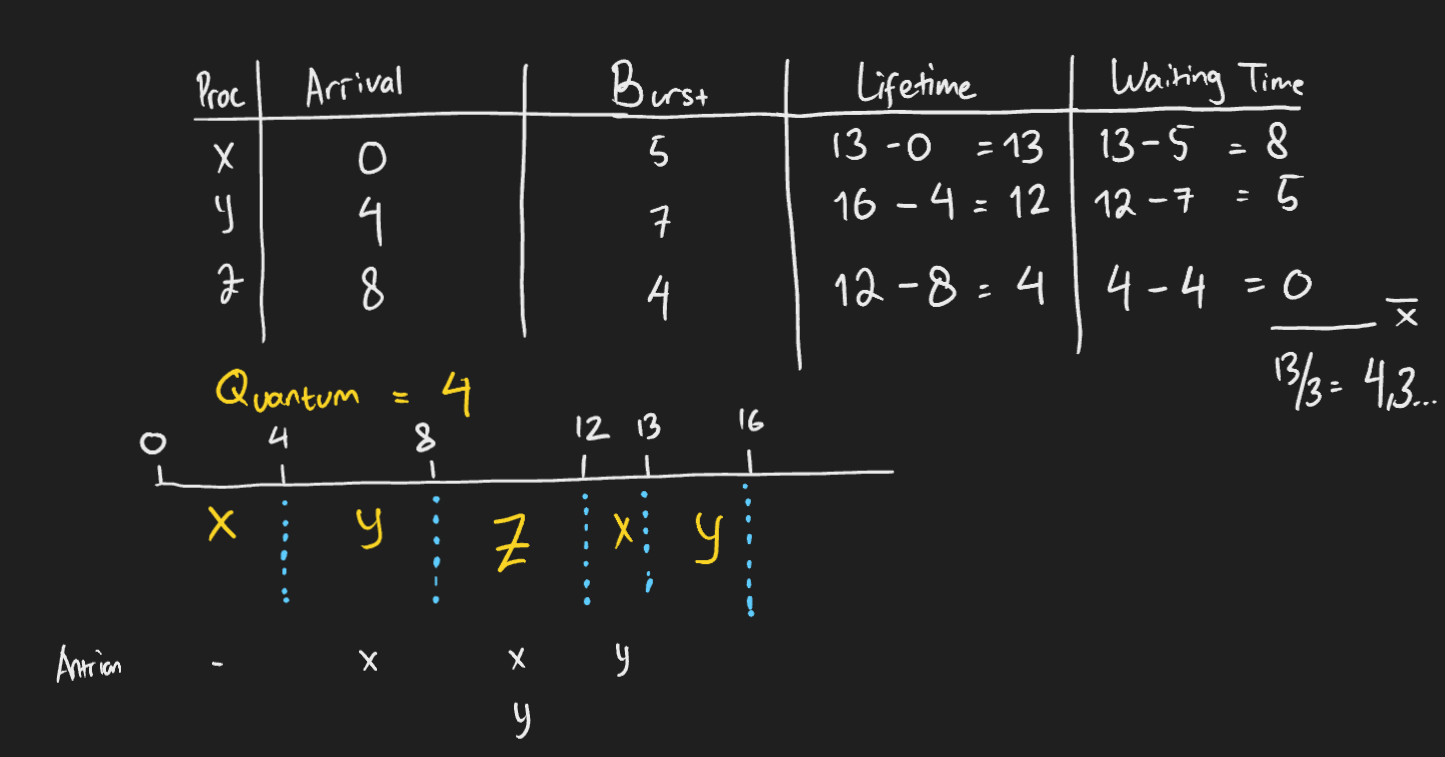 Proc Arrival Burst Lifetime Waiting Time
X 0 5 13 - 0 = 13 13 - 5 = 8
y 4 7 16 - 4 = 12 12 - 7 = 5
Z 8 4 12 - 8 = 4 4 - 4 = 0
x̅
13/3 = 4,3...
Quantum = 4
0 4 8 12 13 16
X y Z X y
Antrian - X X y
y